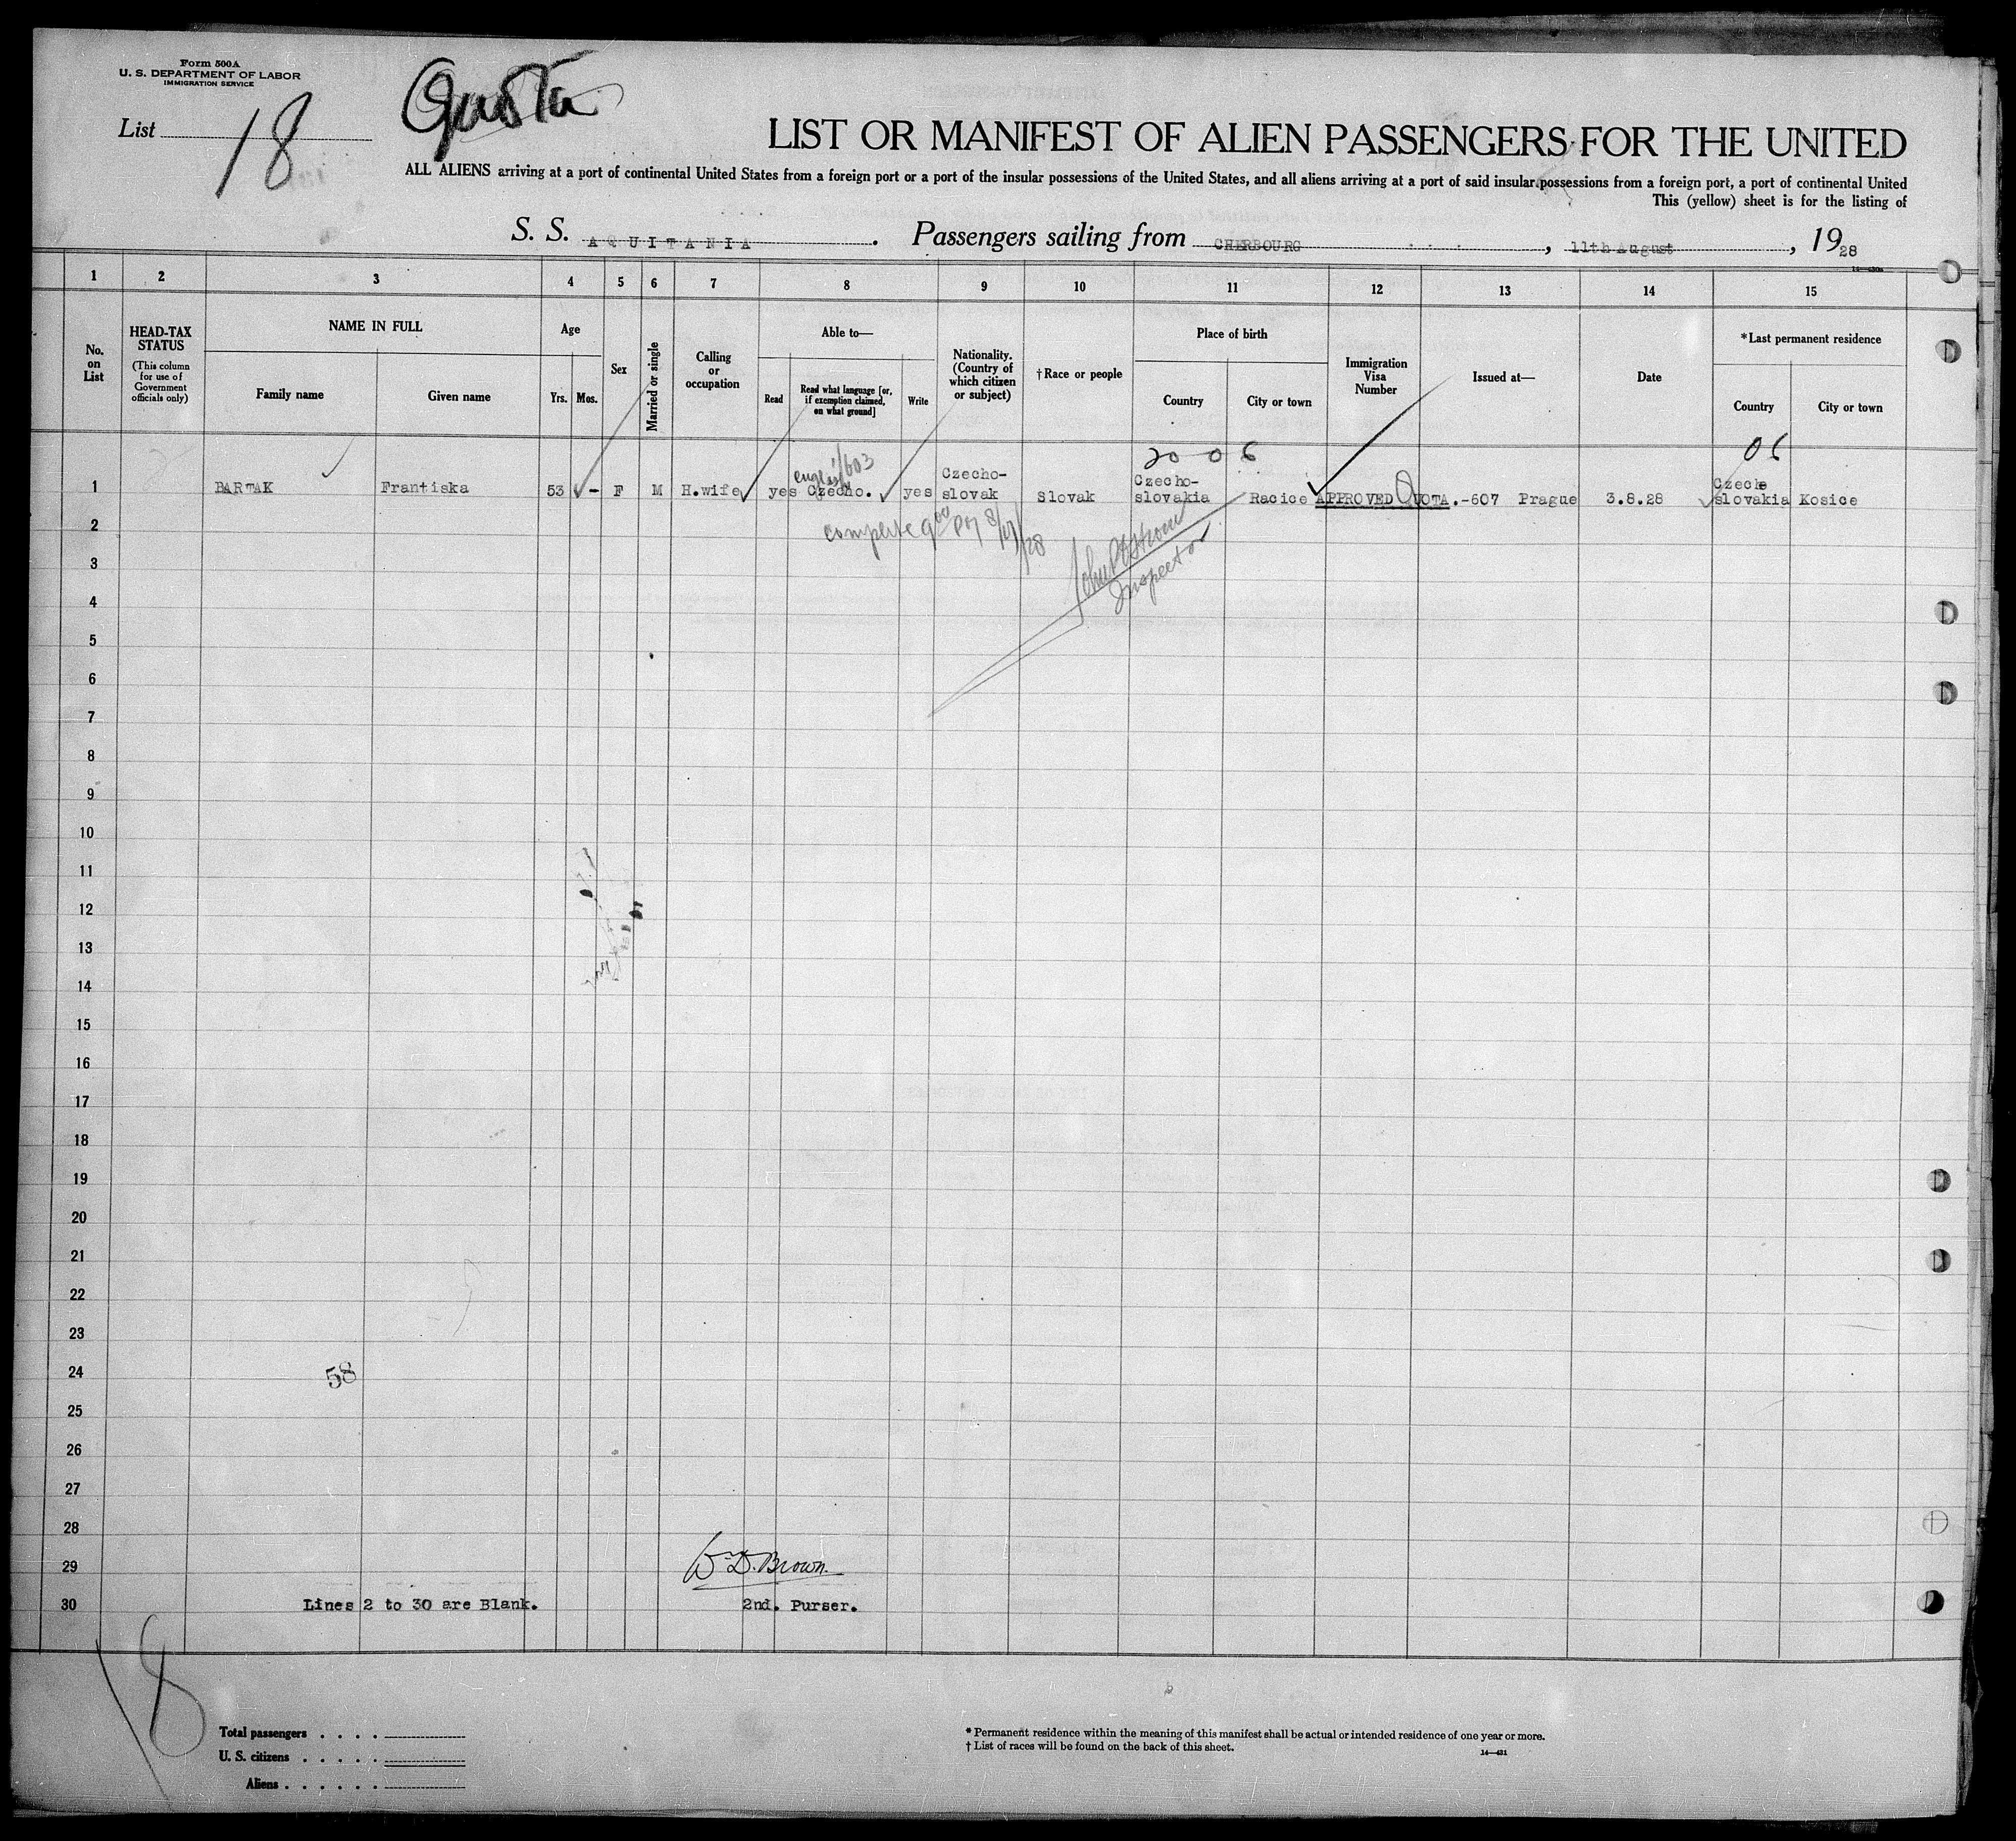 Form 500A
U. S. DEPARTMENT OF LABOR
IMMIGRATION SERVICE
List 18
LIST OR MANIFEST OF ALIEN PASSENGERS FOR THE UNITED
ALL ALIENS arriving at a port of continental United States from a foreign port or a port of the insular possessions of the United States, and all aliens arriving at a port of said insular possessions from a foreign port, a port of continental United
This (yellow) sheet is for the listing of
S. S. AQUITANIA. Passengers sailing from CHERBOURG, 11th August, 1928
1 2 3 4 5 6 7 8 9 10 11 12 13 14 15
No. on List
HEAD-TAX STATUS
(This column for use of Government officials only)
NAME IN FULL
Family name
Given name
Age
Yrs. Mos.
Sex
Married or single
Calling or occupation
Able to—
Read
Read what language [or, if exemption claimed, on what ground]
Write
Nationality. (Country of which citizen or subject)
†Race or people
Place of birth
Country
City or town
Immigration Visa Number
Issued at—
Date
*Last permanent residence
Country
City or town
20 0 6
06
english 1/603
1 BARTAK Frantiska 53 - F M H.wife yes Czecho. yes Czecho-slovak Slovak Czecho-slovakia Racice APPROVED QUOTA.-607 Prague 3.8.28 Czecho slovakia Kosice
complete 9:00 PM 8/17/28
Inspector
2
3
4
5
6
7
8
9
10
11
12
13
14
15
16
17
18
19
20
21
22
23
24
58
25
26
27
28
29
W. D. Brown.
30 Lines 2 to 30 are Blank. 2nd. Purser.
18
Total passengers
U. S. citizens
Aliens
* Permanent residence within the meaning of this manifest shall be actual or intended residence of one year or more.
† List of races will be found on the back of this sheet.
14—431